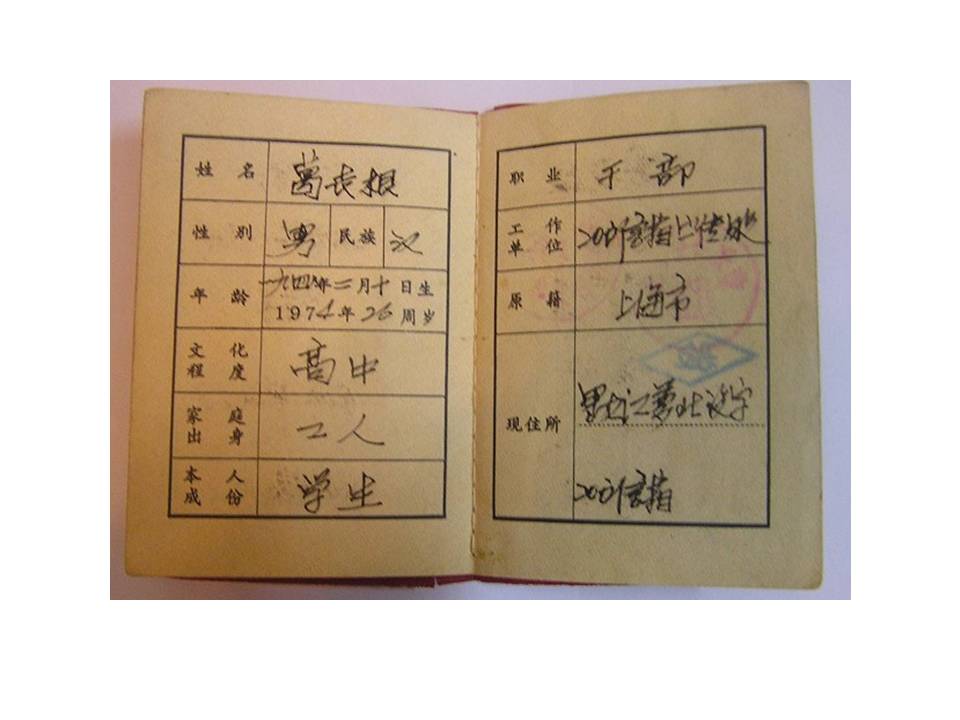 姓 名 萬长根
性 别 男 民族 汉
年 龄 一九四八年二月十日生
1974年26周岁
文 化
程 度 高中
家 庭
出 身 工人
本 人
成 份 学生
职 业 干部
工 作
单 位
原 籍 上海市
现住所 黑龙江萝北